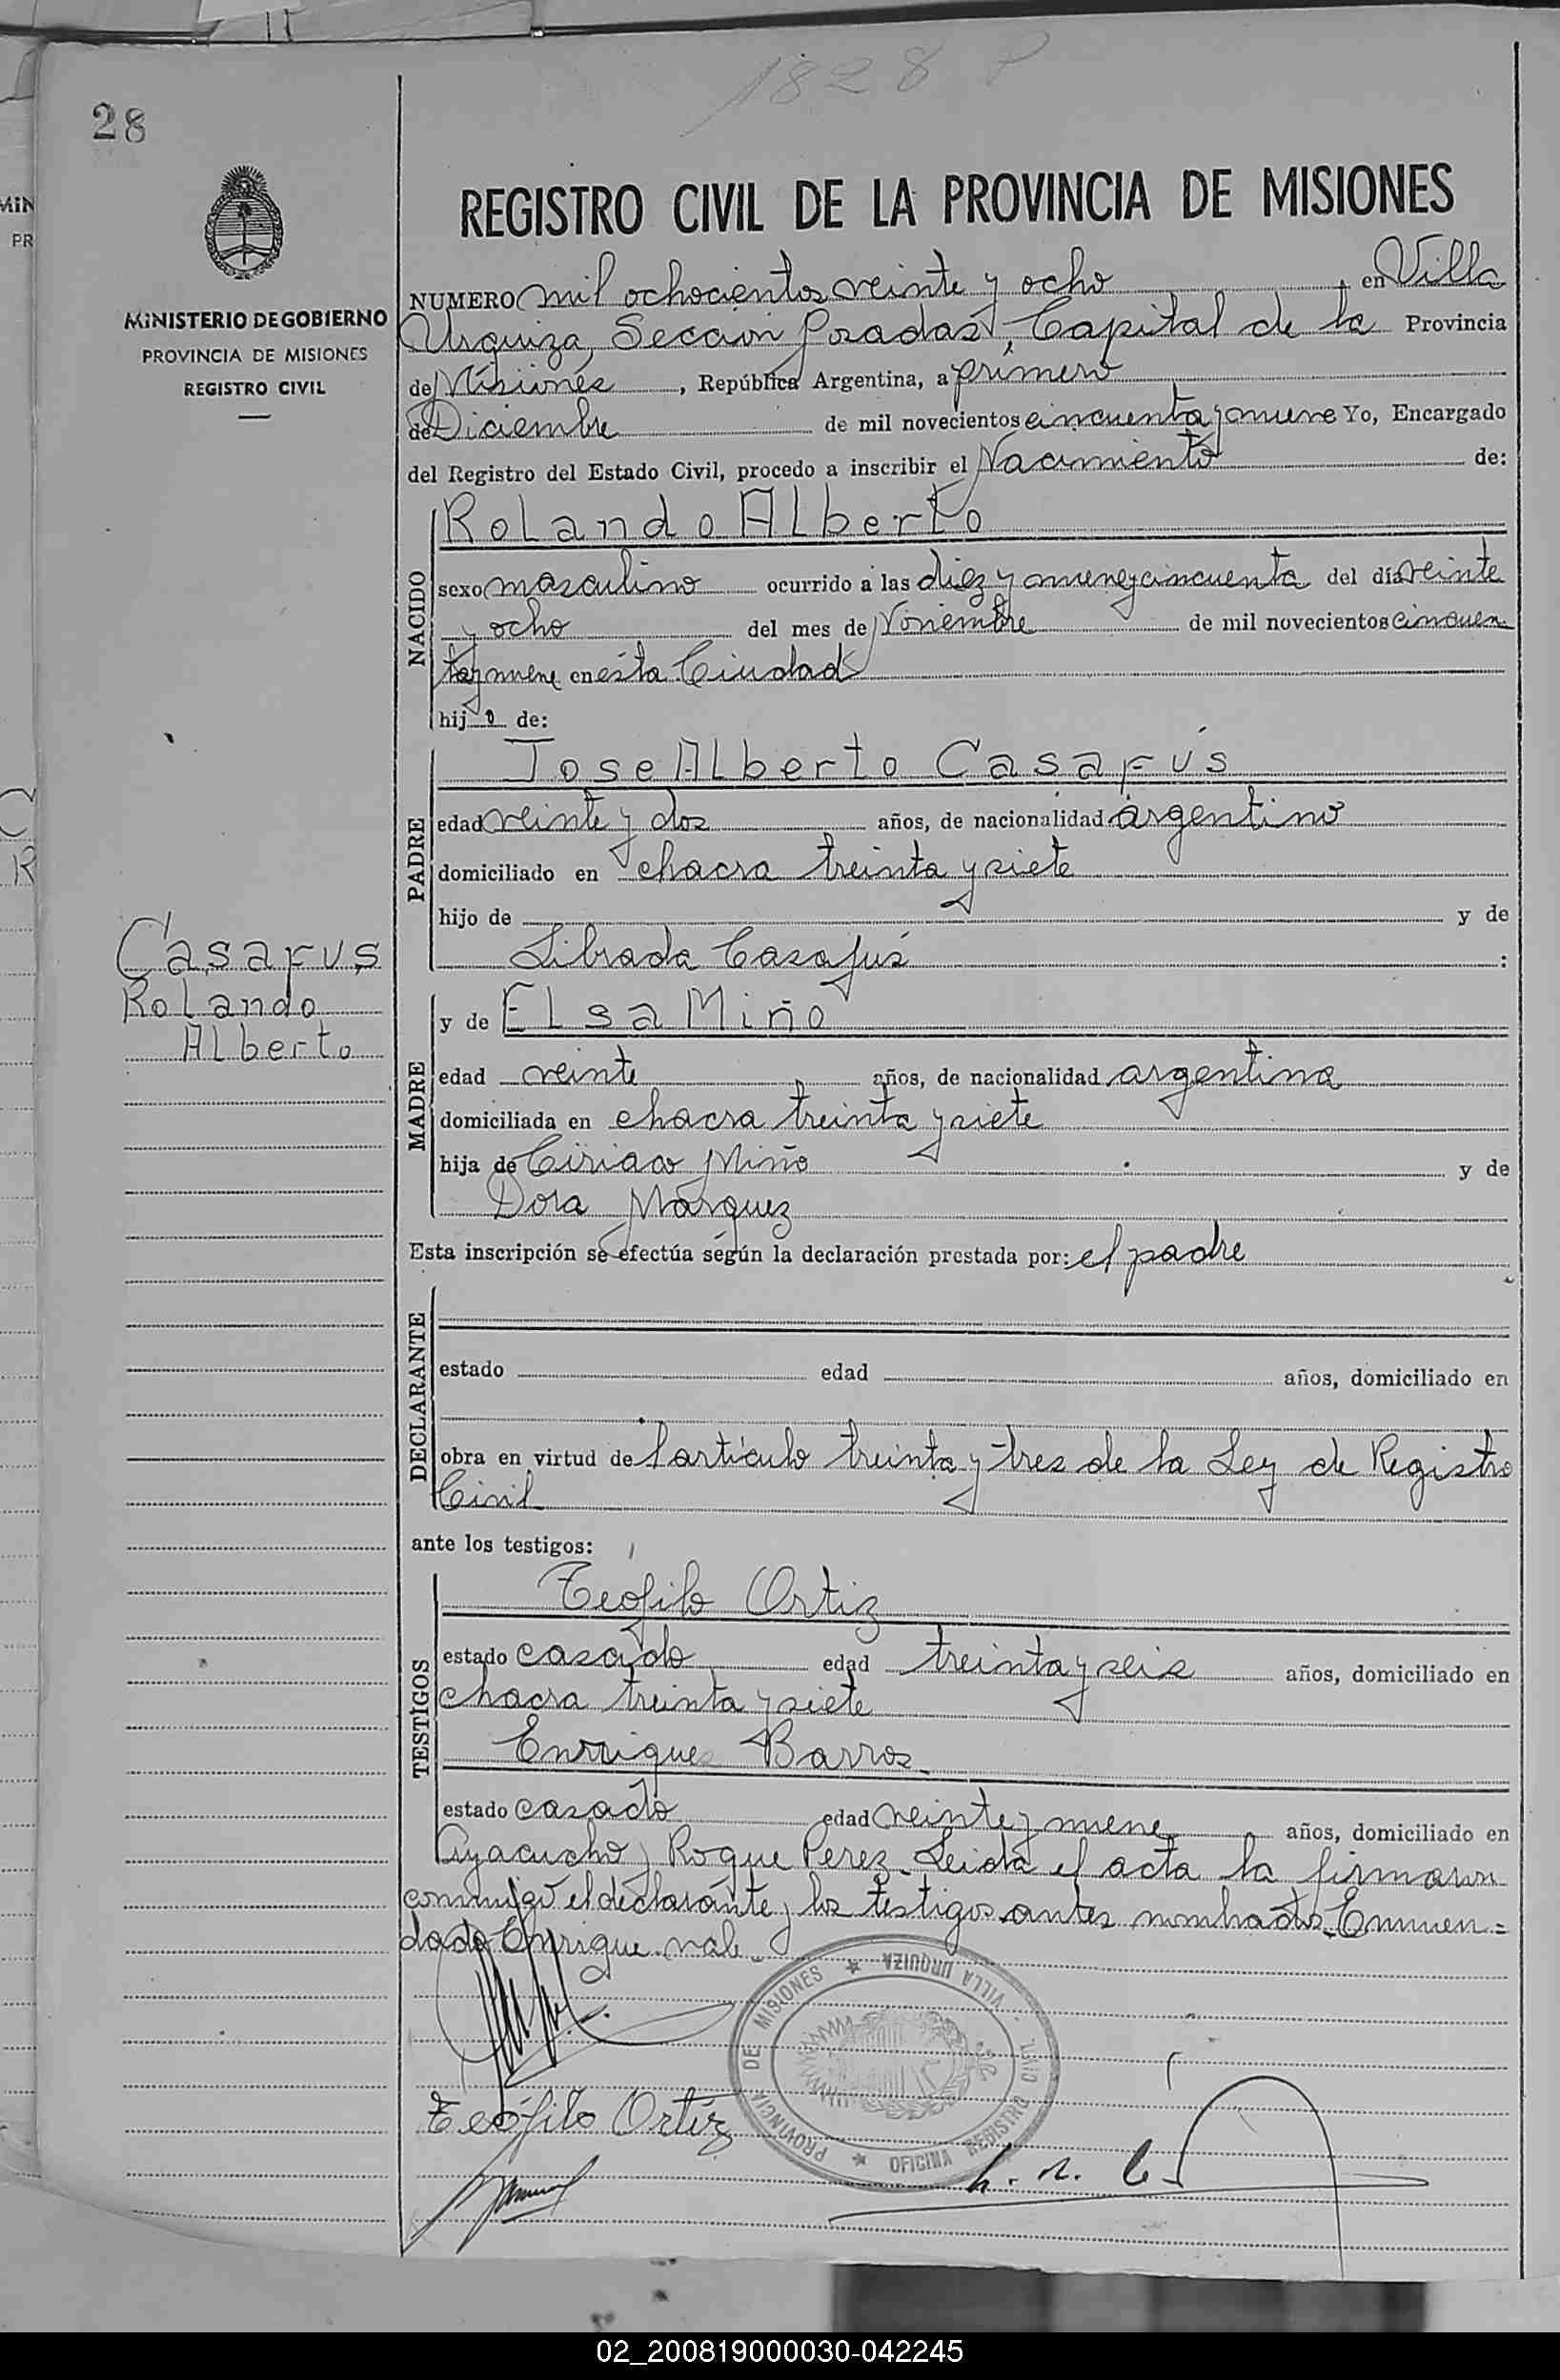 1828 P
28
REGISTRO CIVIL DE LA PROVINCIA DE MISIONES
MINISTERIO DE GOBIERNO
PROVINCIA DE MISIONES
REGISTRO CIVIL
NUMERO mil ochocientos veinte y ocho, en Villa
Urquiza, Sección Posadas, Capital de la Provincia
de Misiones, República Argentina, a primero
de Diciembre de mil novecientos cincuenta y nueve Yo, Encargado
del Registro del Estado Civil, procedo a inscribir el Nacimiento de:
NACIDO
Rolando Alberto
sexo masculino ocurrido a las diez y nueve y cincuenta del día veinte
y ocho del mes de Noviembre de mil novecientos cincuen
ta y nueve en esta Ciudad
hijo de:
PADRE
Jose Alberto Casafús
edad veinte y dos años, de nacionalidad argentino
domiciliado en chacra treinta y siete
hijo de y de
Librada Casafús :
Casafus
Rolando
Alberto
MADRE
y de Elsa Miño
edad veinte años, de nacionalidad argentina
domiciliada en chacra treinta y siete
hija de Ciriaco Miño y de
Dora Márquez
Esta inscripción se efectúa según la declaración prestada por: el padre
DECLARANTE
estado edad años, domiciliado en
obra en virtud de l artículo treinta y tres de la Ley de Registro
Civil
ante los testigos:
TESTIGOS
Teófilo Ortiz
estado casado edad treinta y seis años, domiciliado en
chacra treinta y siete
Enrique Barros
estado casado edad veinte y nueve años, domiciliado en
Ayacucho y Roque Perez. Leida el acta la firmaron
conmigo el declarante y los testigos antes nombrados. Enmen=
dado Enrique vale
PROVINCIA DE MISIONES ★ VILLA URQUIZA ★ OFICINA REGISTRO CIVIL
Teófilo Ortiz
02_200819000030-042245